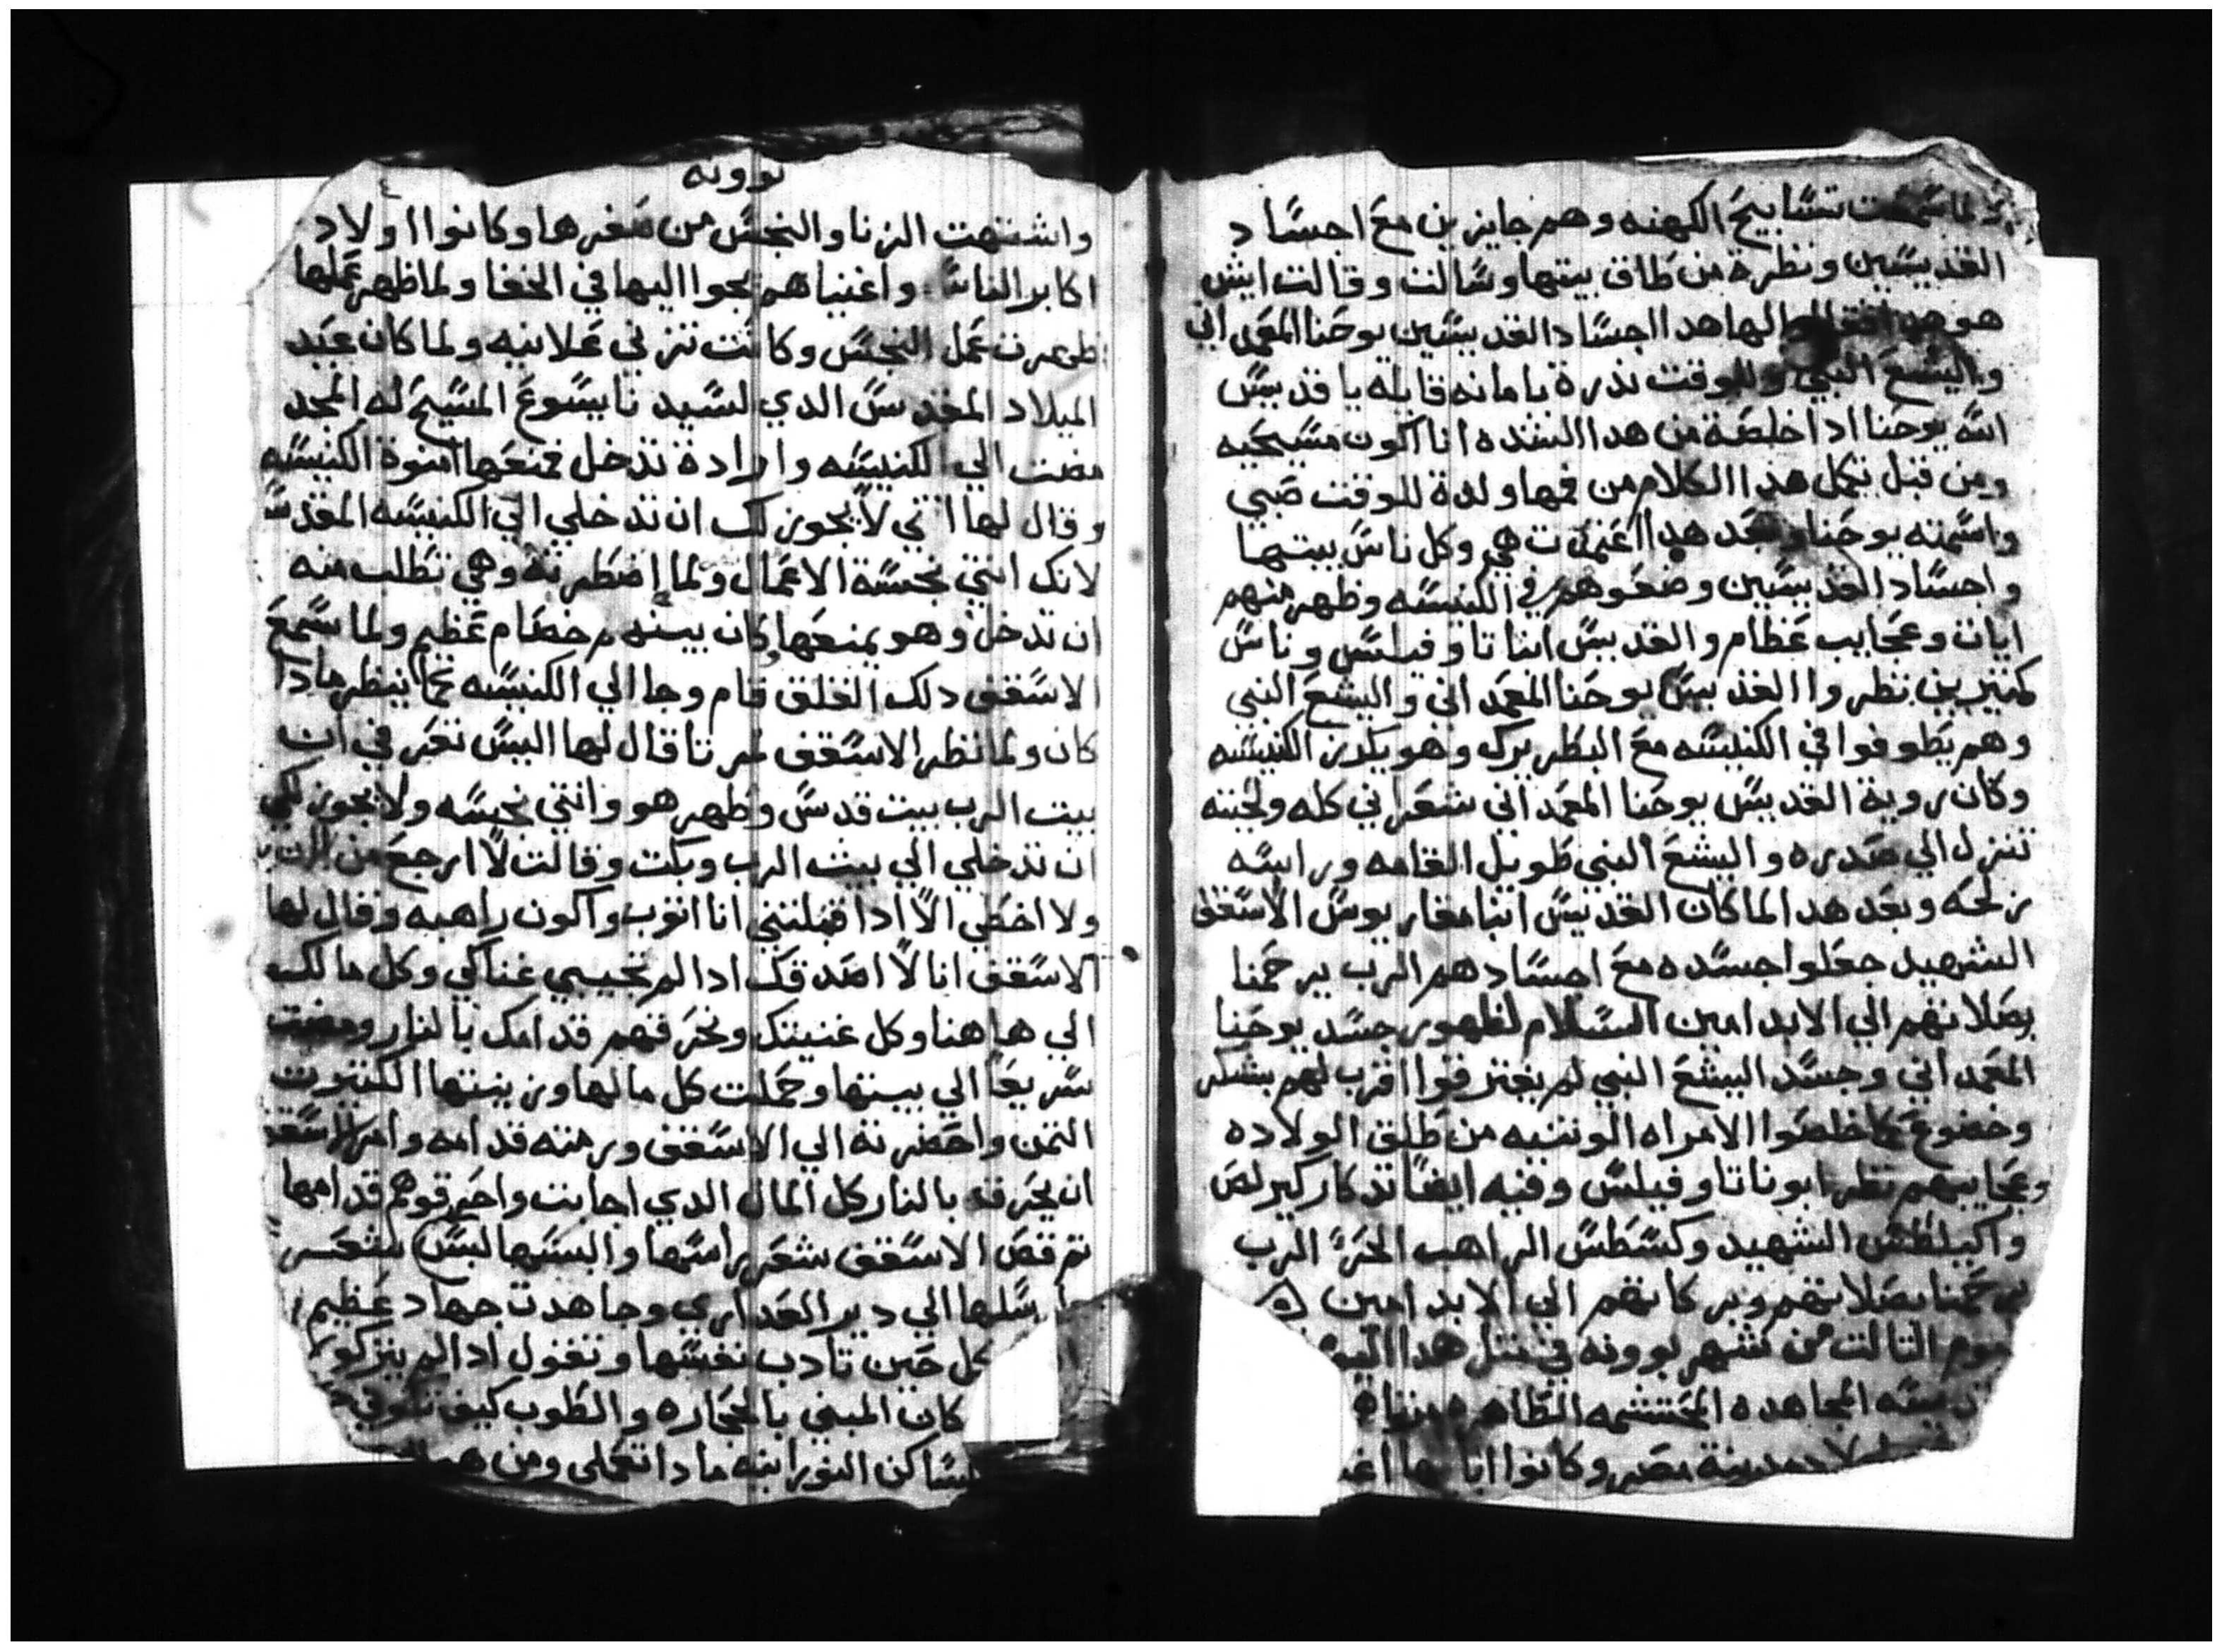 ولما سمعت تسابيح الكهنه وهم جايزين مع اجساد
القديسين ونظرة من طاق بيتها وسالت وقالت ايش
هو هدا فقالوا لها هدا اجساد القديسين يوحنا المعمداني
واليشع النبي وللوقت ندرة بامانه قايله يا قديس
الله يوحنا ادا خلصة من هدا الشده انا اكون مسيحيه
ومن قبل يكمل هدا الكلام من فمها ولدة للوقت صبي
واسمته يوحنا وبعد هدا اعتمدت هي وكل ناس بيتها
واجساد القديسين وضعوهم في الكنيسه وظهر منهم
ايات وعجايب عظام والقديس انبا تاوفيلس وناس
كتيرين نظروا القديس يوحنا المعمداني واليشع النبي
وهم يطوفوا في الكنيسه مع البطريرك وهو يكرز الكنيسه
وكان روية القديس يوحنا المعمداني شعراني كله ولحيته
تنزل الي صدره واليشع النبي طويل القامه وراسه
زلحه وبعد هدا لما كان القديس انبا مقاريوس الاسقف
الشهيد جعلوا جسده مع اجسادهم الرب يرحمنا
بصلاتهم الي الابد امين السلام لظهور جسد يوحنا
المعمداني وجسد اليشع النبي لم يفترقوا اقرب لهم بشكر
وخضوع كما خلصوا الامراه الوتنيه من طلق الولاده
وعجايبهم نظر ابونا تاوفيلس وفيه ايضا تدكار كيرلص
واكيلطس الشهيد وكسطس الراهب الحر الرب
يرحمنا بصلاتهم وبركاتهم الي الابد امين
يوم التالت من شهر بوونه في متل هدا اليوم
المجاهده المحتشمه الطاهره
مدينة مصر وكانوا اباها
بوونه
٤
واشتهت الزنا والنجس من صغرها وكانوا اولاد
اكابر الناس واغنياهم يجوا اليها في الخفا ولما ظهر عملها
ظهرت عمل النجس وكانت تزني علانيه ولما كان عيد
الميلاد المقدس الدي لسيدنا يسوع المسيح له المجد
مضت الي الكنيسه وارادة تدخل فمنعها امنوة الكنيسه
وقال لها انتي لا يجوز لك ان تدخلي الي الكنيسه المقدسه
لانك انتي نجسة الاعمال ولما اضطرته وهي تطلب منه
ان تدخل وهو يمنعها وكان بينهم خصام عظيم ولما سمع
الاسقف دلك القلق قام وجا الي الكنيسه كما ينظر مادا
كان ولما نظر الاسقف مرتا قال لها اليس تعرفي ان
بيت الرب بيت قدس وطهر هو وانتي نجسه ولا يجوز لكي
ان تدخلي الي بيت الرب وبكت وقالت لا ارجع من الان
ولا اخطي الا ادا قبلتني انا اتوب واكون راهبه وقال لها
الاسقف انا لا اصدقك ادا لم تجيبي غناكي وكل مالك
الي هاهنا وكل غنيتك ونحرقهم قدامك بالنار ومضت
سريعا الي بيتها وحملت كل مالها وزينتها الكتيرت
التمن واحضرته الي الاسقف ورمته قدامه وامر الاسقف
ان يحرقه بالنار كل المال الدي اجابت واحرقوهم قدامها
تم قص الاسقف شعر راسها والبسها لبس شعر
وارسلها الي دير العداري وجاهدت جهاد عظيم
كل حين تادب نفسها وتقول ادا لم يتركوا
كان المبني بالحجاره والطوب كيف
ساكن النور ابنه مادا تعملي ومن